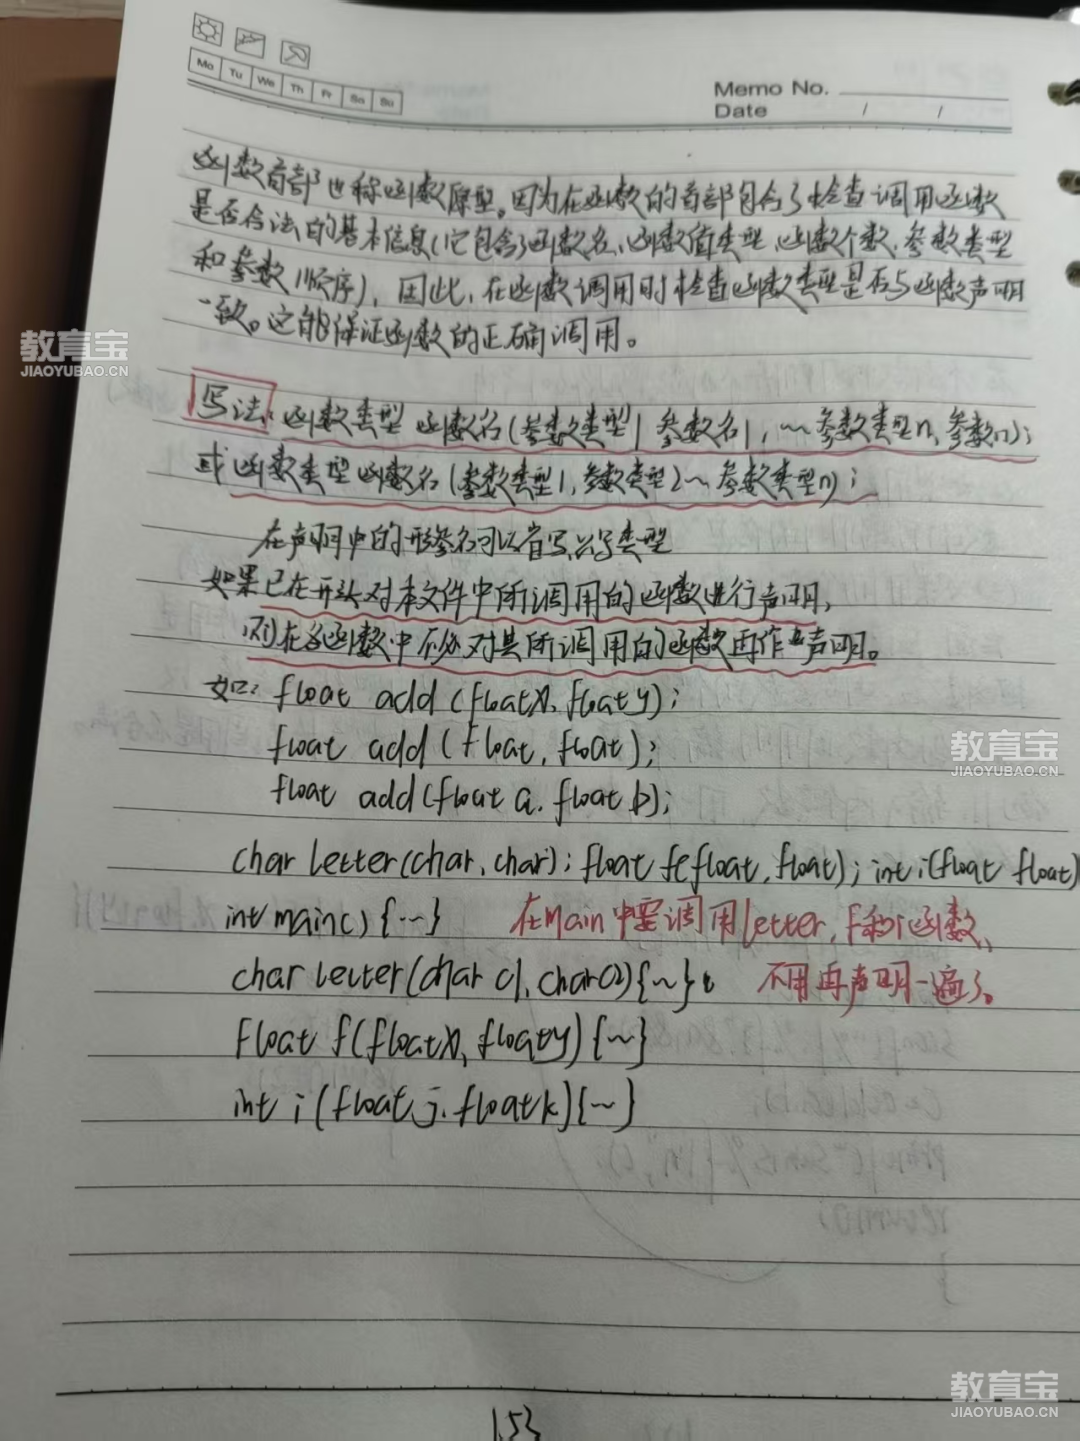 Mo Tu We Th Fr Sa Su
Memo No.
Date / /
函数首部也称函数原型。因为在函数的首部包含了检查调用函数
是否合法的基本信息(它包含了函数名、函数值类型、函数个数、参数类型
和参数顺序), 因此, 在函数调用时检查函数类型是否与函数声明
一致。这能保证函数的正确调用。
教育宝
JIAOYUBAO.CN
写法: 函数类型 函数名(参数类型1 参数名1, ~参数类型n, 参数n);
或函数类型函数名(参数类型1, 参数类型2~参数类型n);
在声明中的形参名可以省写,只写类型
如果已在开头对本文件中所调用的函数进行声明,
则在各函数中不必对其所调用的函数再作声明。
如: float add (float x, float y);
float add (float, float);
教育宝
JIAOYUBAO.CN
float add(float a, float b);
char letter(char, char); float f(float, float); int i(float float)
int main() {~} 在main中要调用letter, f和i函数,
char letter(char c1, char c2){~} 不用再声明一遍了。
float f(float x, float y) {~}
int i (float j, float k){~}
教育宝
JIAOYUBAO.CN
153